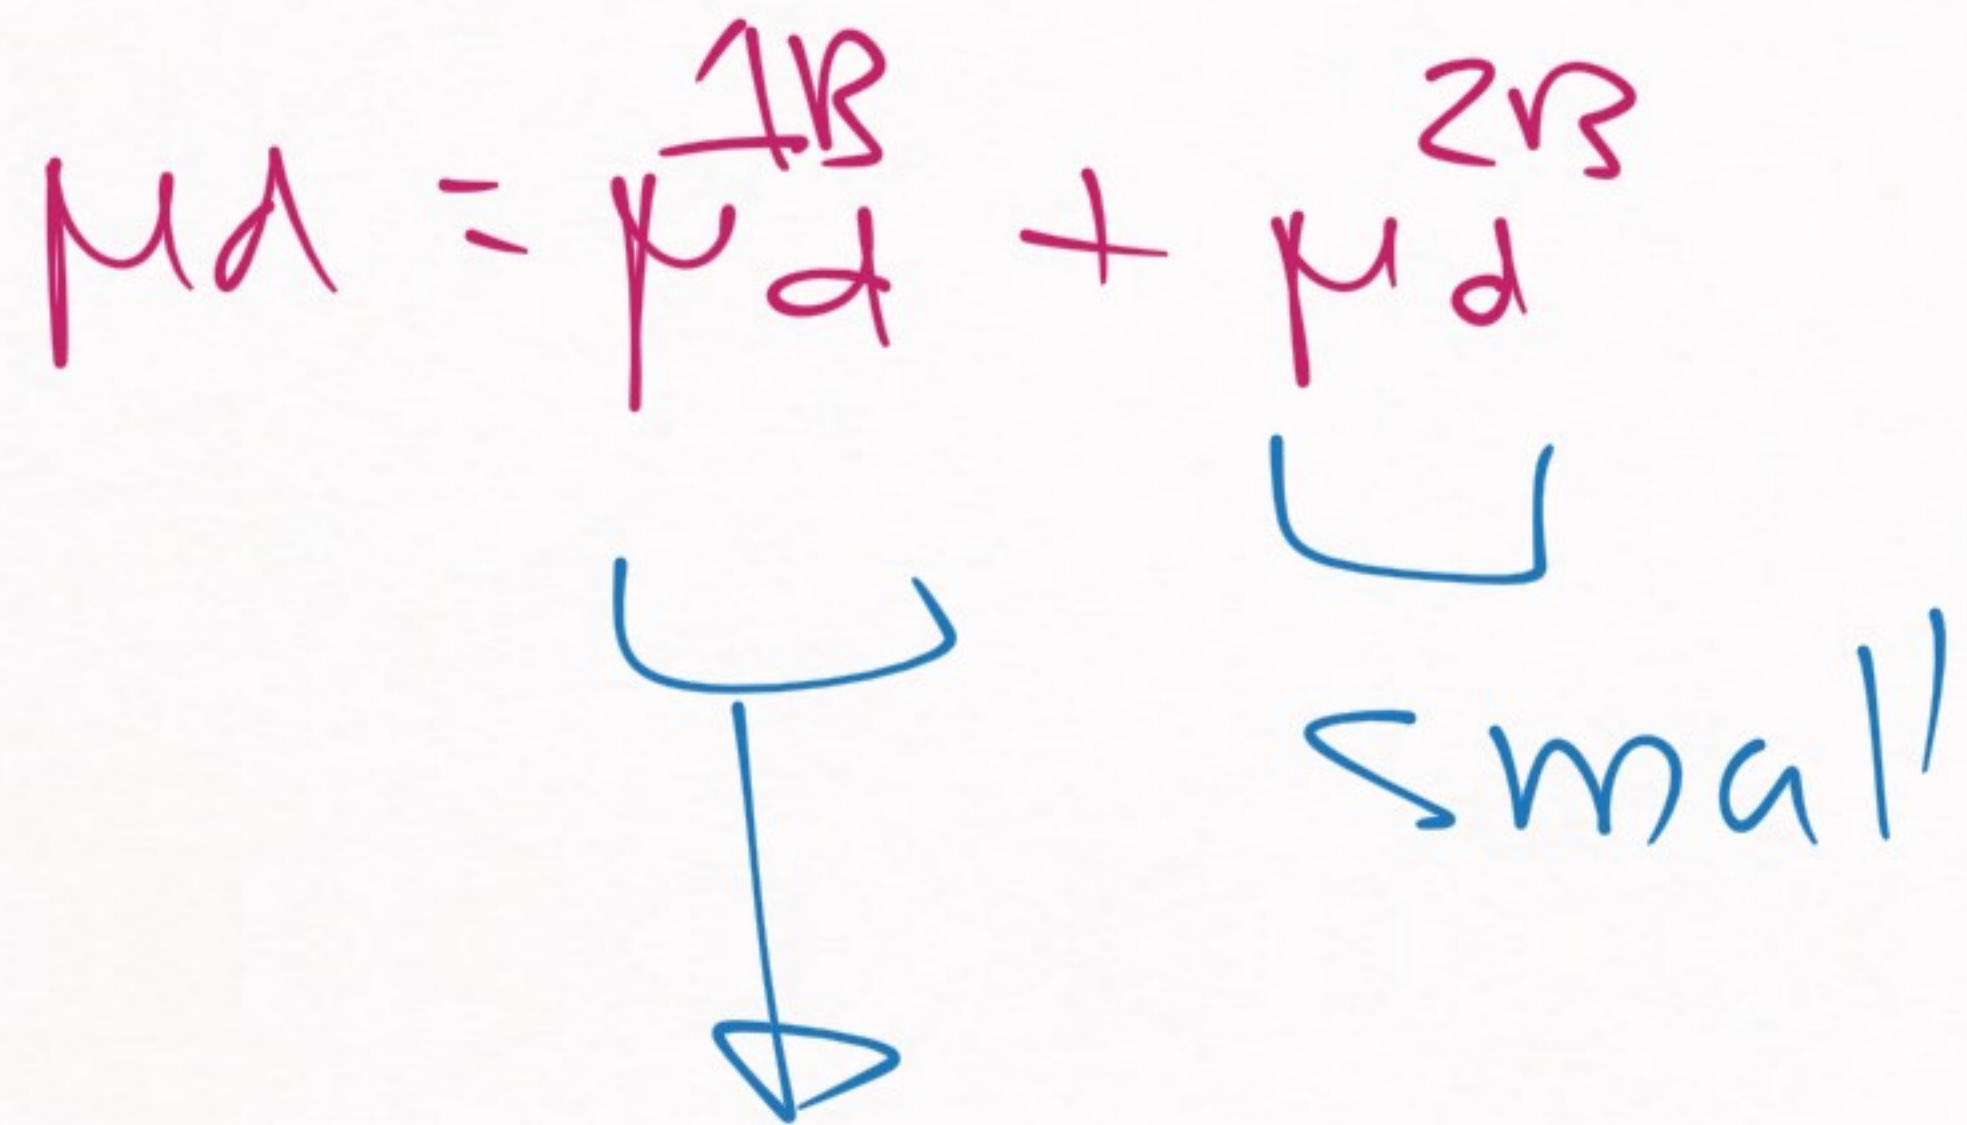 μd = μd^1B + μd^2B
small